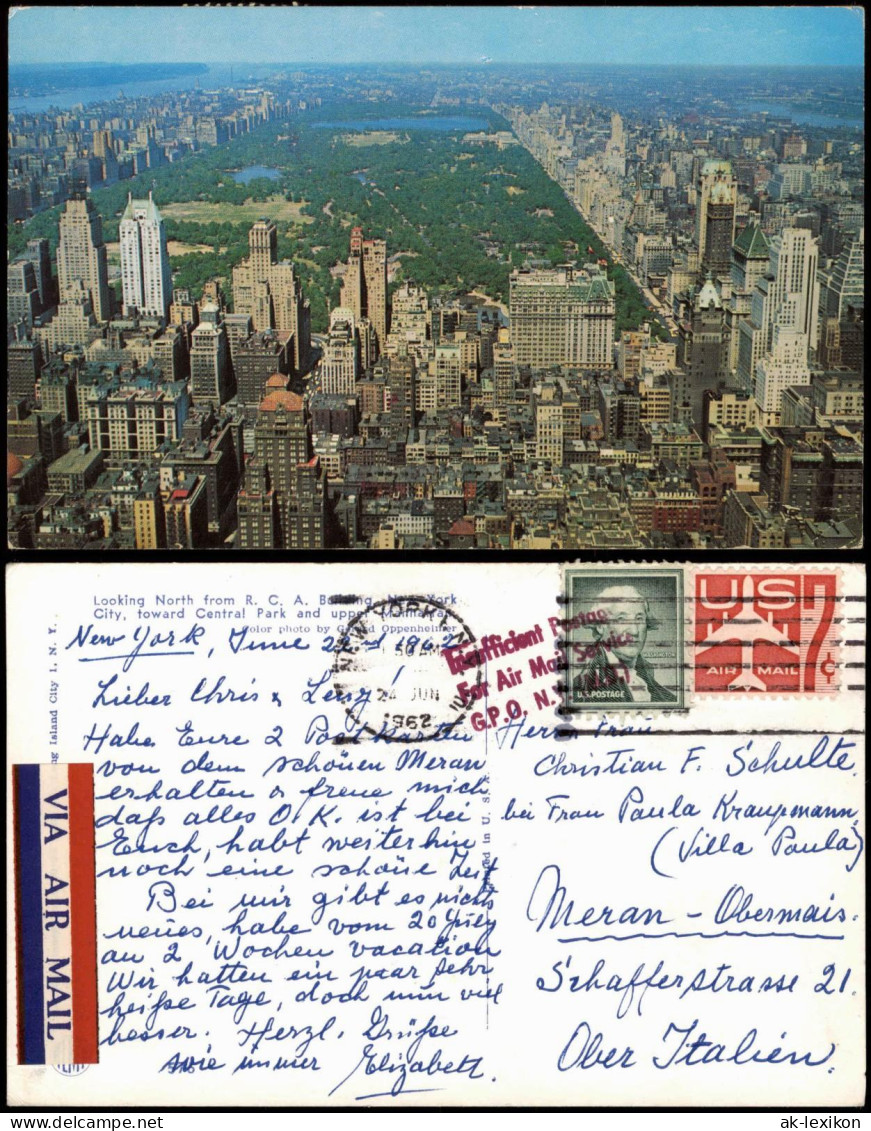 Looking North from R. C. A. Building, New York
City, toward Central Park and upper Manhattan
Color photo by Oppenheimer
New York, June 1962
Lieber Chris &
Habe Eure 2 Postkarten
von dem schönen Meran
erhalten & freue mich
daß alles O.K. ist bei
Euch, habt weiterhin
noch eine schöne Zeit
Bei mir gibt es nichts
neues, habe vom 20 July
an 2 Wochen vacation
Wir hatten ein paar sehr
heiße Tage, doch nun viel
besser. Herzl. Grüße
wie immer Elizabeth
VIA AIR MAIL
Island City 1, N. Y.
in U. S.
NEW YORK, N.
AM
24 JUN
1962
Insufficient Postage
For Air Mail Service
G.P.O. N.Y.
U.S. POSTAGE
US 7¢
AIR MAIL
Herrn Frau
Christian F. Schulte
bei Frau Paula Kraupmann
(Villa Paula)
Meran - Obermais.
Schafferstrasse 21.
Ober Italien.
ak-lexikon